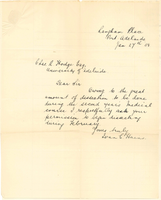 Langham Place
Port Adelaide
Jan 29th
Chas R Hodge Esq
University of Adelaide
Dear Sir
Owing to the great
amount of dissection to be done
during the second years medical
course I respectfully ask your
permission to begin dissecting
during February
Yours truly